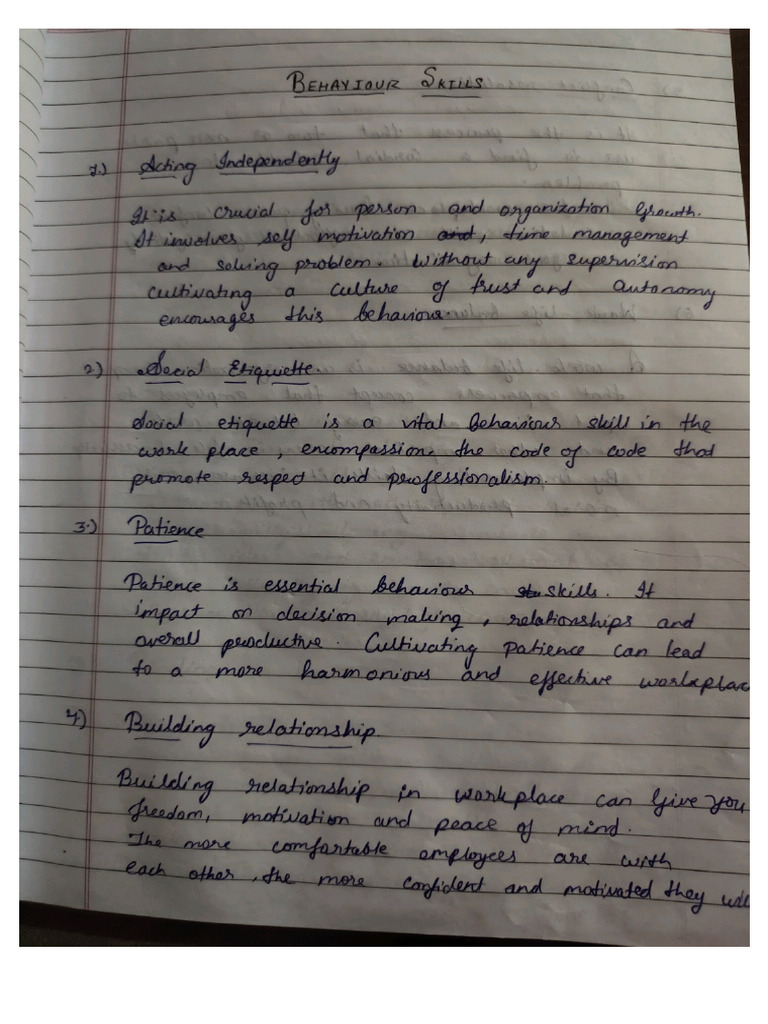 BEHAVIOUR SKILLS
1.) Acting Independently
It is crucial for person and organization Growth.
It involves self motivation and, time management
and solving problem. Without any supervision
cultivating a culture of trust and autonomy
encourages this behaviour.
2) Social Etiquette.
Social etiquette is a vital behaviour skill in the
work place, encompassion, the code of code that
promote respect and professionalism.
3.) Patience
Patience is essential behaviour skills. It
impact on decision making, relationships and
overall productive. Cultivating patience can lead
to a more harmonious and effective workplac
4.) Building relationship.
Building relationship in workplace can Give you
freedom, motivation and peace of mind.
The more comfortable employees are with
each other, the more confident and motivated they will